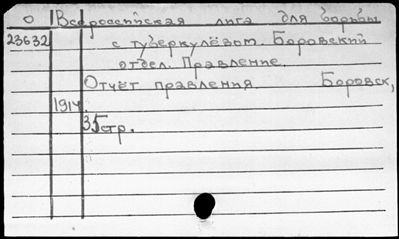 О Всероссийская лига для борьбы
23632 с туберкулёзом. Боровский
отдел. Правление.
Отчёт правления. Боровск,
1914.
35стр.